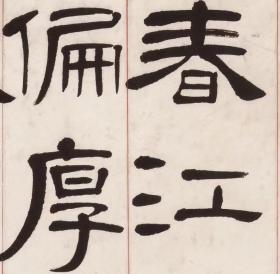 春江
偏厚